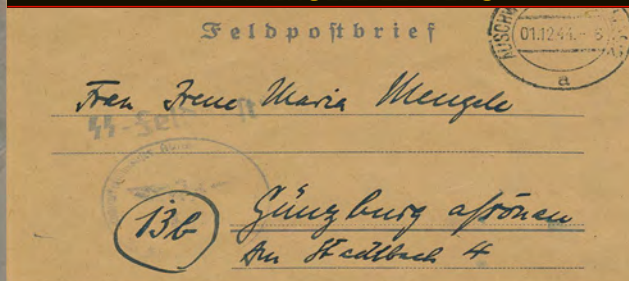 Feldpostbrief
01.12.44.-6
a
Frau Irene Maria Mengele
SS-Feldpost
13b
Günzburg
Am Stadtbach 4